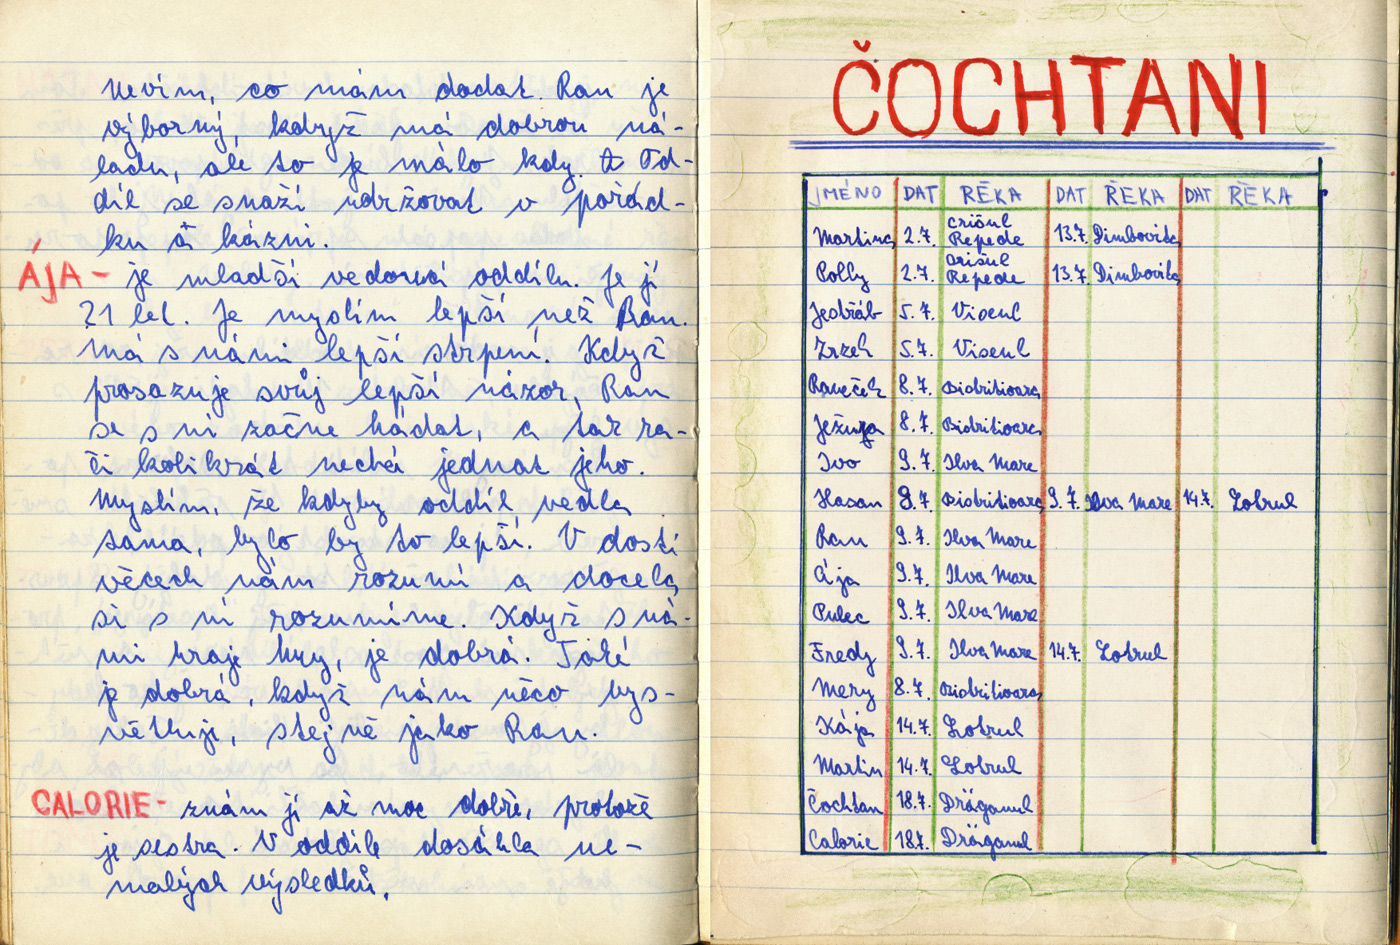 Nevím, co mám dodat. Ran je
výborný, když má dobrou ná-
ladu, ale to je málo kdy. Od-
díl se snaží udržovat v pořád-
ku a kázni.
ÁJA - je mladší vedoucí oddílu. Je jí
21 let. Je myslím lepší než Ran.
Má s námi lepší strpení. Když
prosazuje svůj lepší názor, Ran
se s ní začne hádat, a tak ra-
či kolikrát nechá jednat jeho.
Myslím, že kdyby oddíl vedla
sama, bylo by to lepší. V dosti
věcech nám rozumí a docela
si s ní rozumíme. Když s ná-
mi hraje hry, je dobrá. Také
je dobrá, když nám něco vys-
větluje, stejně jako Ran.
CALORIE - znám ji až moc dobře, protože
je sestra. V oddíle dosáhla ne-
malých výsledků.
ČOCHTANI
JMÉNO DAT ŘĚKA DAT ŘĚKA DAT ŘĚKA
Martina 2.7. Crişul Repede 13.7. Dimbovita
Polly 2.7. Crişul Repede 13.7. Dimbovita
Jestřáb 5.7. Viseul
Zrzek 5.7. Viseul
Raneček 8.7. Bistritioara
Ježura 8.7. Bistritioara
Ivo 9.7. Ilva Mare
Hasan 8.7. Bistritioara 9.7. Ilva Mare 14.7. Lotrul
Ran 9.7. Ilva Mare
Ája 9.7. Ilva Mare
Pulec 9.7. Ilva Mare
Fredy 9.7. Ilva Mare 14.7. Lotrul
Mery 8.7. Bistritioara
Kája 14.7. Lotrul
Martin 14.7. Lotrul
Čochtan 18.7. Drăganul
Calorie 18.7. Drăganul